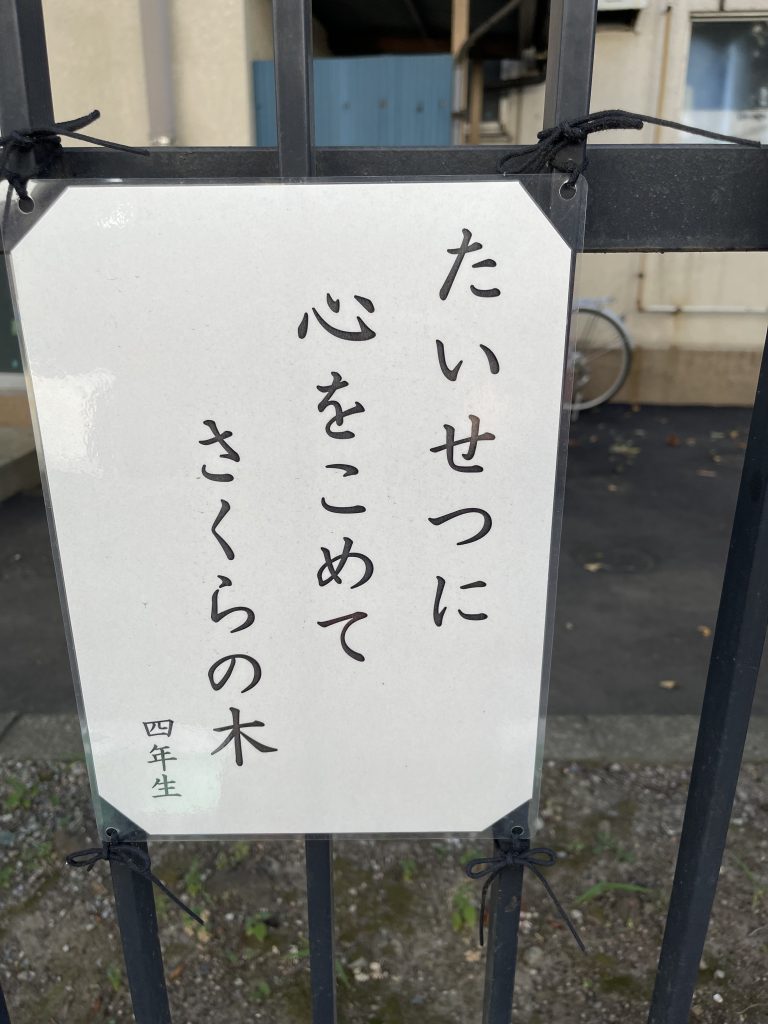 たいせつに
心をこめて
さくらの木
四年生